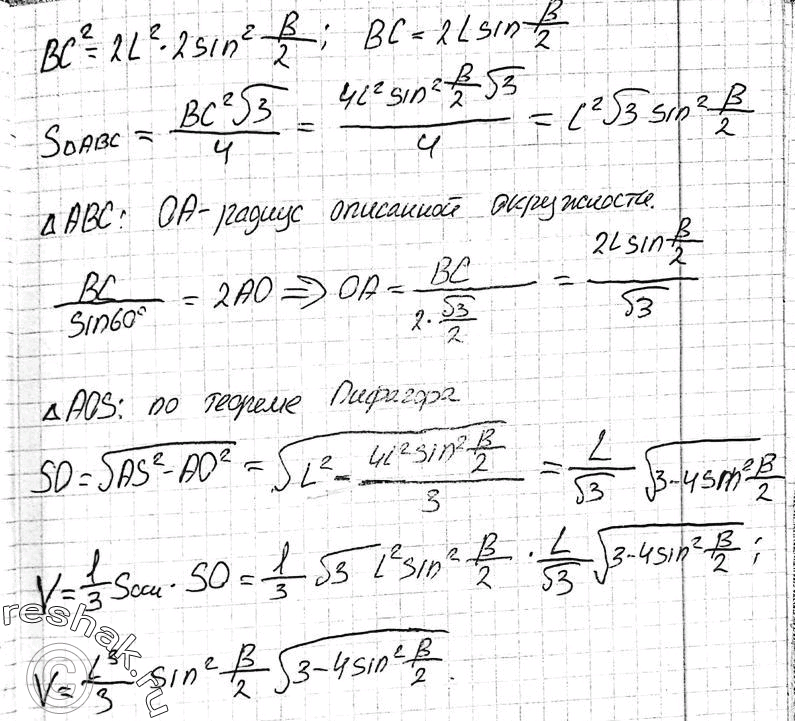 BC² = 2L² · 2sin² β/2; BC = 2L sin β/2
S△ABC = BC²√3/4 = 4L² sin² β/2 √3/4 = L²√3 sin² β/2
△ABC: OA - радиус описанной окружности.
BC/sin60° = 2AO ⇒ OA = BC/(2·√3/2) = 2L sin β/2/√3
△AOS: по теореме Пифагора
SO = √(AS² - AO²) = √(L² - 4L² sin² β/2/3) = L/√3 √(3-4sin² β/2)
V = 1/3 Sосн · SO = 1/3 √3 L² sin² β/2 · L/√3 √(3-4sin² β/2);
V = L³/3 sin² β/2 √(3-4sin² β/2).
reshak.ru
©